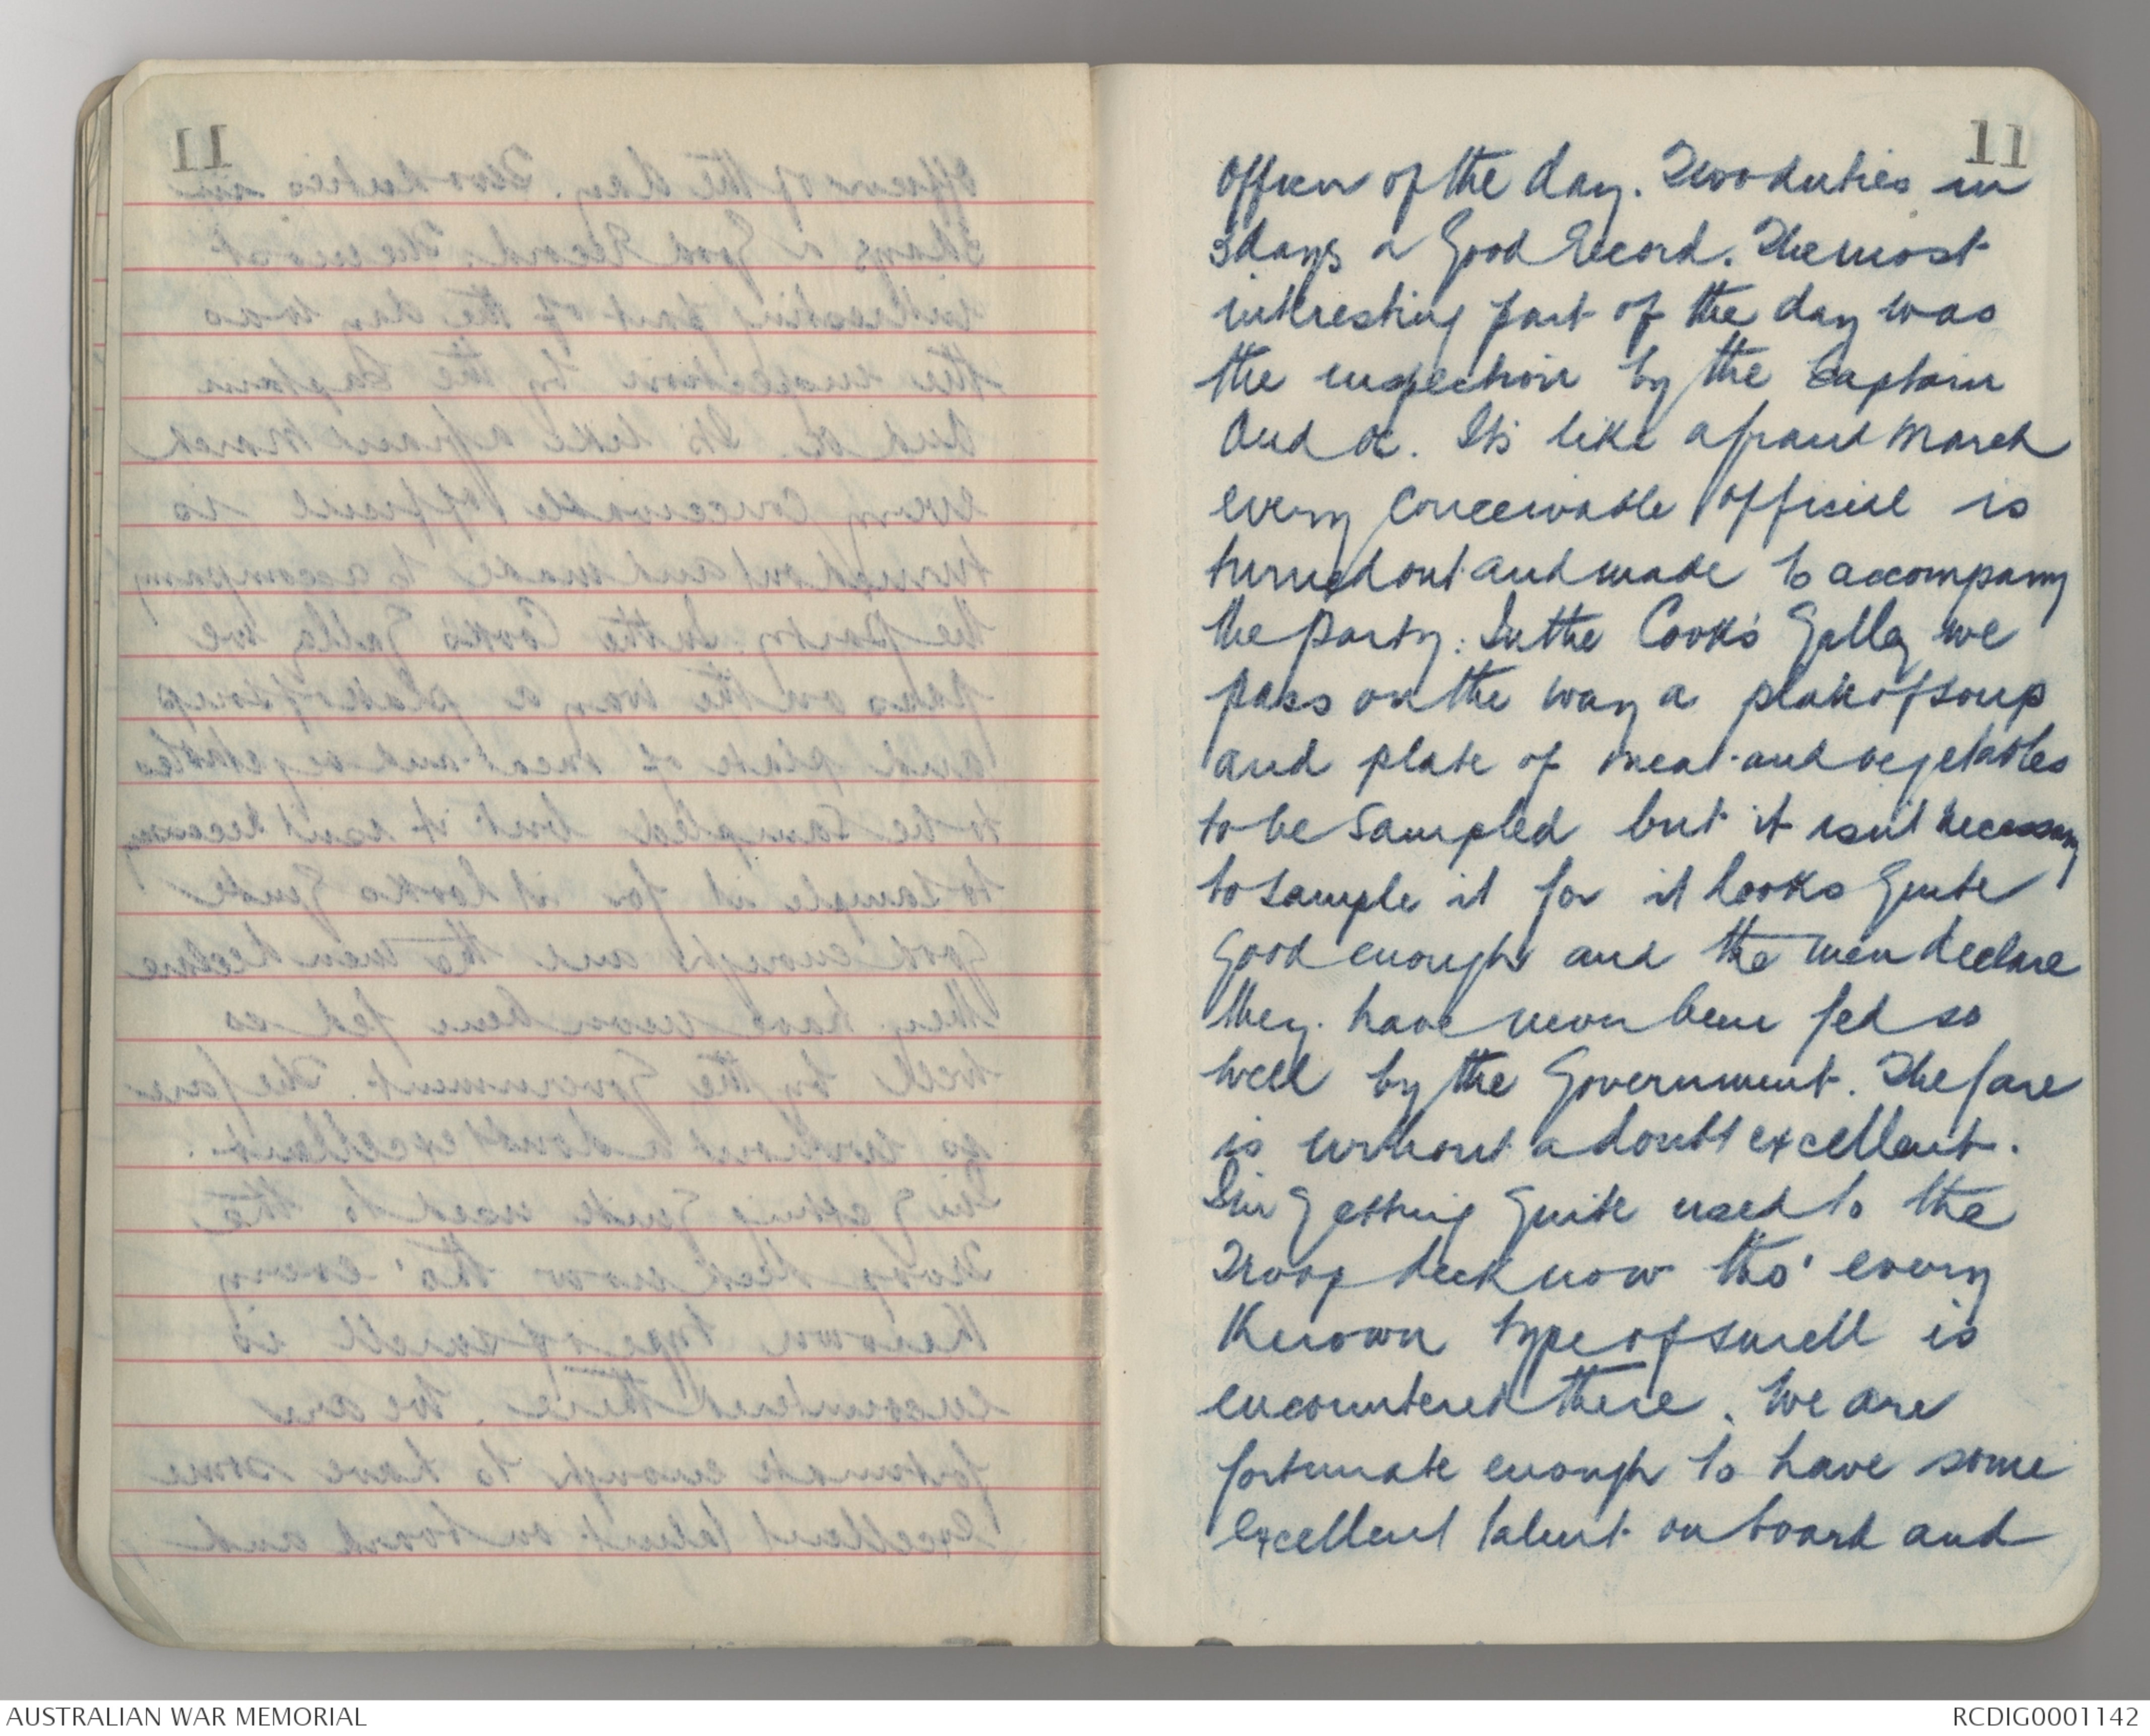 11
Officer of the day. Two duties in
3 days a Good Record. The most
interesting part of the day was
the inspection by the Captain
And OC. Its like a grand march
every conceivable official is
turned out and made to accompany
the party. In the Cook's Galley we
pass on the way a plate of soup
and plate of meat and vegetables
to be sampled but it isn't necessary
to sample it for it looks quite
good enough and the men declare
they have never been fed so
well by the Government. The fare
is without a doubt excellent.
I'm getting quite used to the
Troop deck now tho' every
Known type of smell is
encountered there. We are
fortunate enough to have some
excellent talent on board and
AUSTRALIAN WAR MEMORIAL
RCDIG0001142